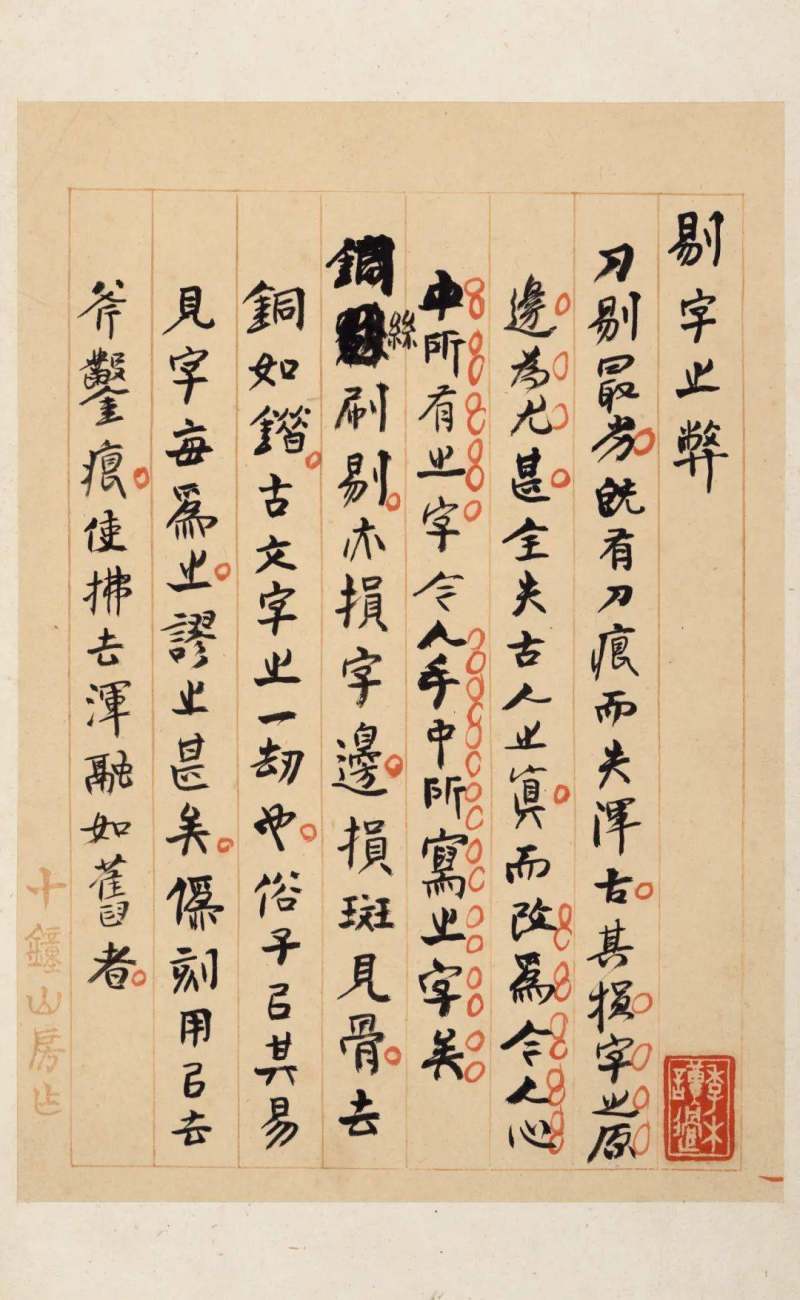 剔字之弊
刀剔最劣既有刀痕而失渾古其損字之原
邊為尤甚全失古人之真而改爲今人心
中所有之字令人手中所寫之字矣
銅絲刷剔亦損字邊損斑見骨去
銅如鐕古文字之一劫也俗子㠯其易
見字每爲之謬之甚矣僞刻用㠯去
斧鑿痕使拂去渾融如舊者
十鐘山房
李木
讀過